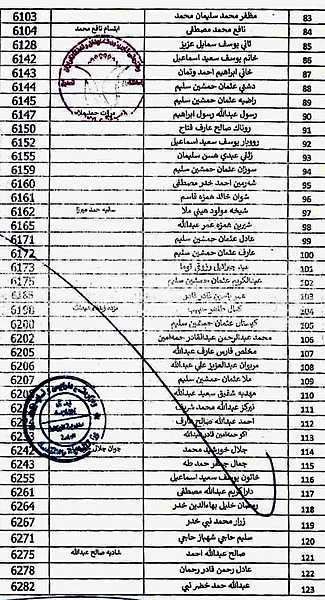 83 مظفر محمد سليمان محمد 6103
84 نافع محمد مصطفى ابتسام نافع محمد 6104
85 ثاني يوسف سمايل عزيز 6128
86 خاتم يوسف سعيد اسماعيل 6142
87 خاني ابراهيم احمد وتمان 6143
88 دشتي عثمان حمشين سليم 6144
89 راضيه عثمان حمشين سليم 6145
90 رسول عبدالله رسول ابراهيم 6147
91 روناك صالح عارف فتاح 6150
92 رووبار يوسف سعيد اسماعيل 6152
93 زلني عبدي هسن سليمان 6155
94 سوزان عثمان حمشين سليم 6159
95 شەرمين احمد خدر مصطفى 6160
96 شوان خالد همزه قاسم 6161
97 شيخه مولود هيني ملا 6162
98 شيرين همزه عمر عبدالله 6165
99 عادل عثمان حمشين سليم 6171
100 عارف عثمان حمشين سليم 6172
101 عبد جبرائيل رزوقي توما 6173
102 عبدالكريم عثمان حمشين سليم 6175
103 عمر ياسين قادر قادر
104 كمال
105 كويستان عثمان حمشين سليم 6200
106 محمد عبدالرحمن عبدالقادر حمدامين 6202
107 مخلص فارس عارف عبدالله 6205
108 مريوان عبدالعزيز علي عبدالله 6206
109 ملا عثمان حمشين سليم 6207
110 مهديه شفيق سعيد عبدالله
111 نيركز عبدالله محمد شريف
112 احمد عبدالله صالح عارف
113 اكو حمدامين قادر عبدالله
114 جلال خورشيد محمد جوان جلال 6242
115 جمال جوهر حمد طه 6243
116 خاتون يوسف سعيد اسماعيل 6255
117 دارا كريم عبدالله مصطفى 6261
118 رمضان خليل بهاءالدين خدر 6264
119 زرار محمد نبي خدر 6267
120 سليم حاجي شهباز حاجي 6271
121 صالح عبدالله احمد شاديه صالح عبدالله 6275
122 عادل رحمن قادر رحمان 6278
123 عبدالله حمد خضر نبي 6282